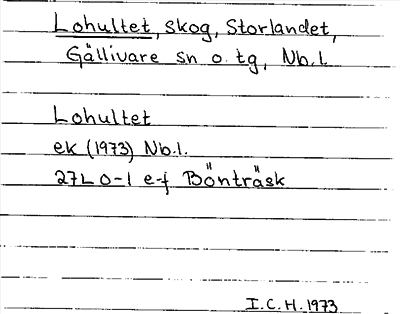 Lohultet, skog, Storlandet,
Gällivare sn o. tg, Nb.l.
Lohultet
ek (1973) Nb.l.
27L 0-1 e-f Bönträsk
I.C.H. 1973